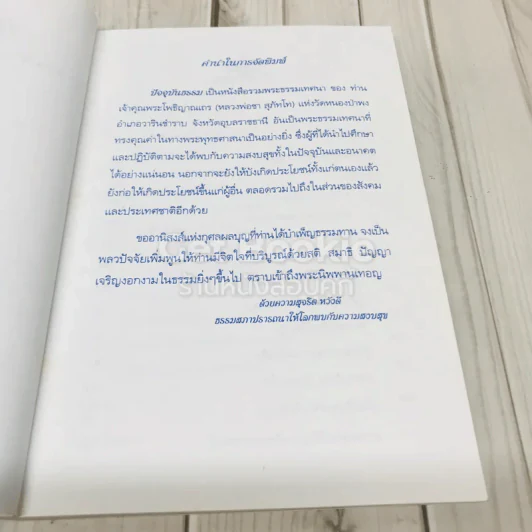 คำนำในการจัดพิมพ์
ปัจจุบันธรรม เป็นหนังสือรวมพระธรรมเทศนา ของ ท่าน
เจ้าคุณพระโพธิญาณเถร (หลวงพ่อชา สุภัทโท) แห่งวัดหนองป่าพง
อำเภอวารินชำราบ จังหวัดอุบลราชธานี อันเป็นพระธรรมเทศนาที่
ทรงคุณค่าในทางพระพุทธศาสนาเป็นอย่างยิ่ง ซึ่งผู้ที่ได้นำไปศึกษา
และปฏิบัติตามจะได้พบกับความสงบสุขทั้งในปัจจุบันและอนาคต
ได้อย่างแน่นอน นอกจากจะยังให้บังเกิดประโยชน์ทั้งแก่ตนเองแล้ว
ยังก่อให้เกิดประโยชน์ขึ้นแก่ผู้อื่น ตลอดรวมไปถึงในส่วนของสังคม
และประเทศชาติอีกด้วย
ขออานิสงส์แห่งกุศลผลบุญที่ท่านได้บำเพ็ญธรรมทาน จงเป็น
พลวปัจจัยเพิ่มพูนให้ท่านมีจิตใจที่บริบูรณ์ด้วยสติ สมาธิ ปัญญา
เจริญงอกงามในธรรมยิ่งๆขึ้นไป ตราบเข้าถึงพระนิพพานเทอญ
ร้านหนังสือบุ๊คคุกกี้
ด้วยความสุจริต หวังดี
ธรรมสภาปรารถนาให้โลกพบกับความสงบสุข